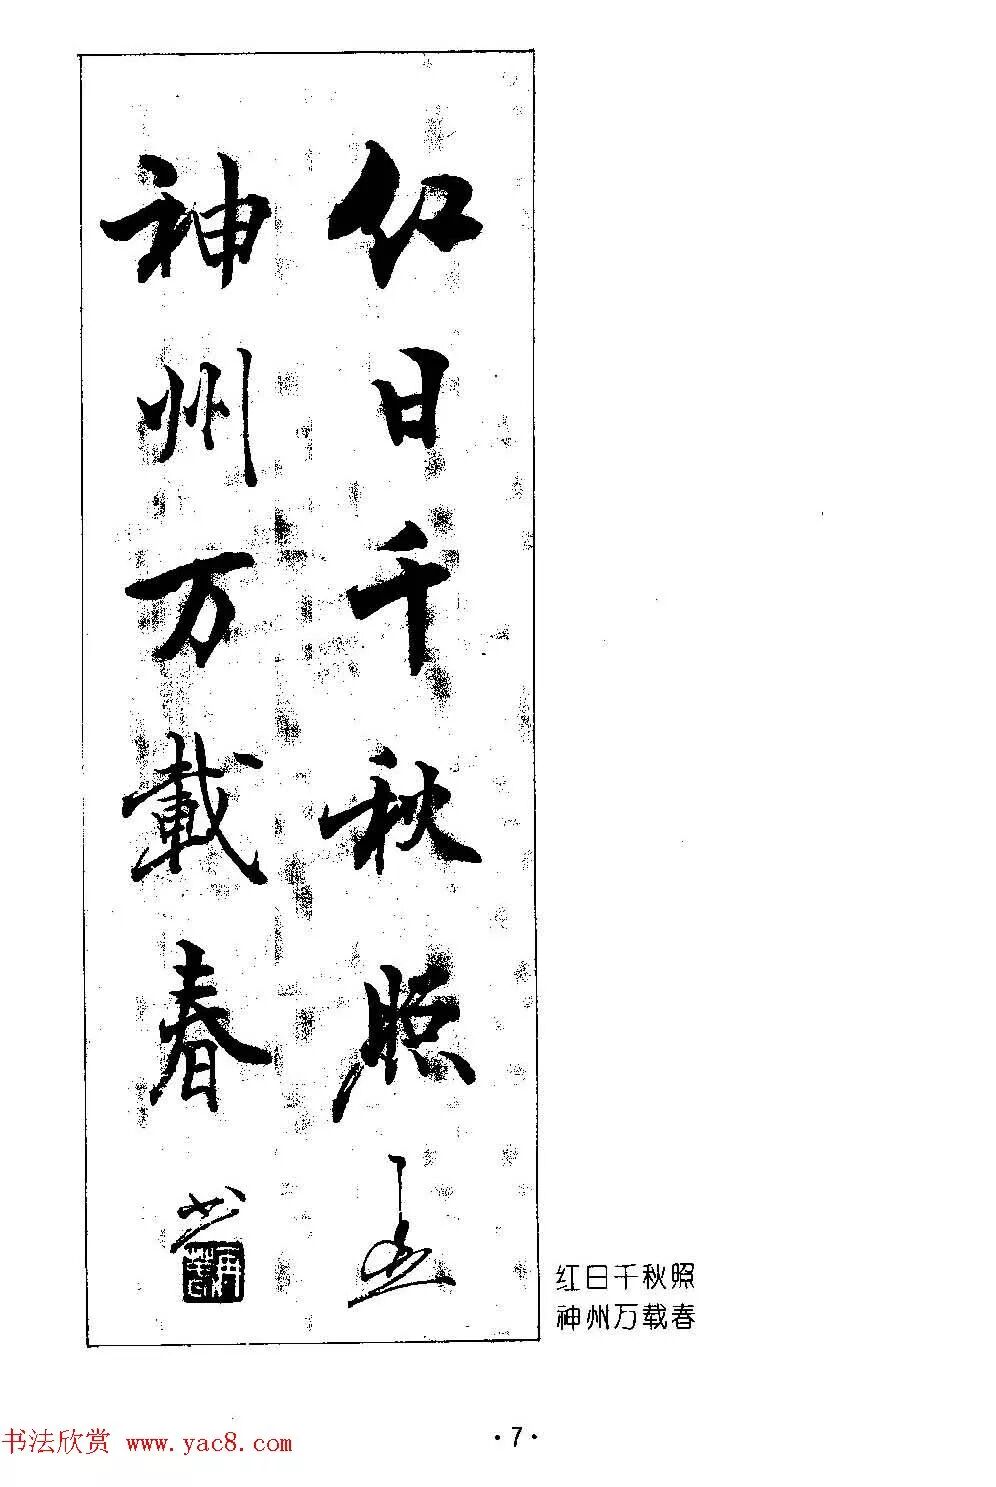 红日千秋照
神州万載春
红日千秋照
神州万载春
·7·
书法欣赏 www.yac8.com